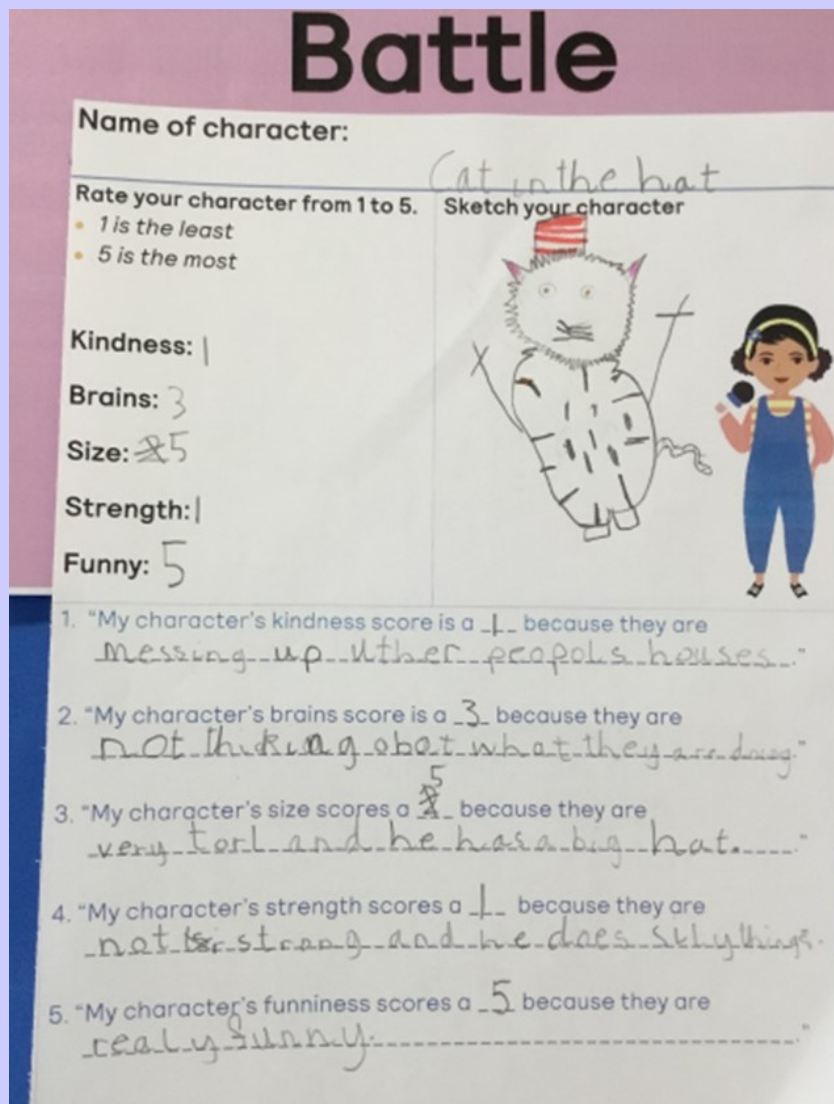 Battle
Name of character:
Cat in the hat
Rate your character from 1 to 5.
• 1 is the least
• 5 is the most
Sketch your character
Kindness: 1
Brains: 3
Size: 5
Strength: 1
Funny: 5
1. "My character's kindness score is a 1 because they are
messing up uther peopols houses."
2. "My character's brains score is a 3 because they are
not thicking abot what they are doing."
3. "My character's size scores a 5 because they are
very torl and he has a big hat."
4. "My character's strength scores a 1 because they are
not strong and he does silly things."
5. "My character's funniness scores a 5 because they are
realy funny."